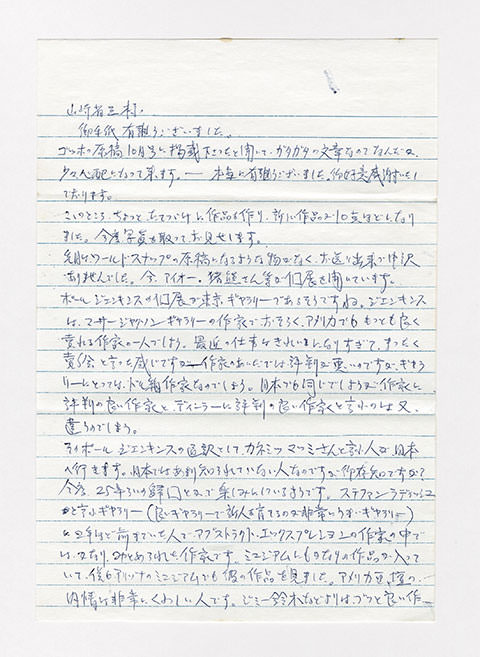 山崎省三様.
御手紙有難うございました。
ゴッホの原稿10月号に掲載下さったと聞いて、ガタガタの文章なのでなんだか
少々心配になって来ます。— 本当に有難うございました。御好意感謝いたし
ております。
このところ、ちょっと、たてつづけに作品を作り、新しい作品が10点ほどになり
ました。今度写真を取ってお見せします。
ワールドスナップの原稿になるような物がなく、お送り出来ず申訳
ありませんでした。今、アイオー、猪熊さん等が個展を開いています。
ポール ジェンキンスの個展が東京ギャラリーであるそうですね。ジェンキンス
は、マーサージャクソンギャラリーの作家でおそらく、アメリカでも もっとも良く
売れる作家の一人でしょう。最近の仕事はきれいになりすぎて、まったく
売絵と言った感じですが 作家のあいだでは評判が悪いのですが、ギャラ
リーにとっては、ドル箱作家なのでしょう。日本でも同じでしょうが 作家に
評判の良い作家と、ディーラーに評判の良い作家と言うのは又
違うのでしょう。
そのポール ジェンキンスの通訳として、カネミツ マツミさんと言う人が日本
へ行きます。日本ではあまり知られていない人なのですが御存知ですか?
今度、25年ぶりの帰国とかで楽しみにしているようです。ステファン ラディッシュ
とか言うギャラリー(良いギャラリーで新人を育てるのが非常にうまいギャラリー)
に2年ほど前までいた人で アブストラクト・エックスプレションの作家の中で
は、かなり、みとめられた作家です。ミュジアムにもかなりの作品が入っ
ていて、僕もアメリカのミュジアムでも彼の作品を見ました。アメリカ画壇の
内情に非常に、くわしい人です。ジミー鈴木などよりは、ズット良い作